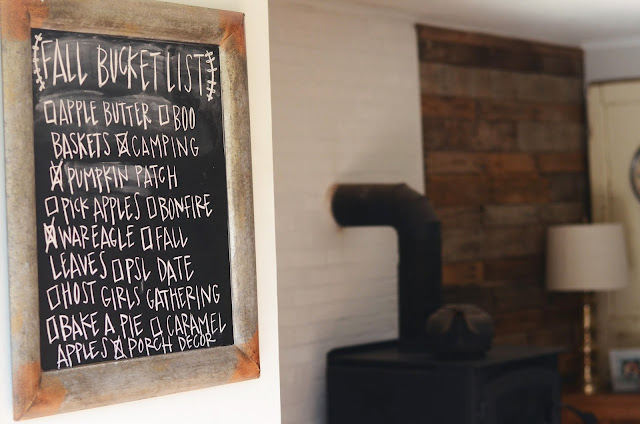 FALL BUCKET LIST
☐ APPLE BUTTER ☐ BOO
BASKETS ☒ CAMPING
☒ PUMPKIN PATCH
☐ PICK APPLES ☐ BONFIRE
☒ WAR EAGLE ☐ FALL
LEAVES ☐ PSL DATE
☐ HOST GIRLS GATHERING
☐ BAKE A PIE ☐ CARAMEL
APPLES ☒ PORCH DECOR